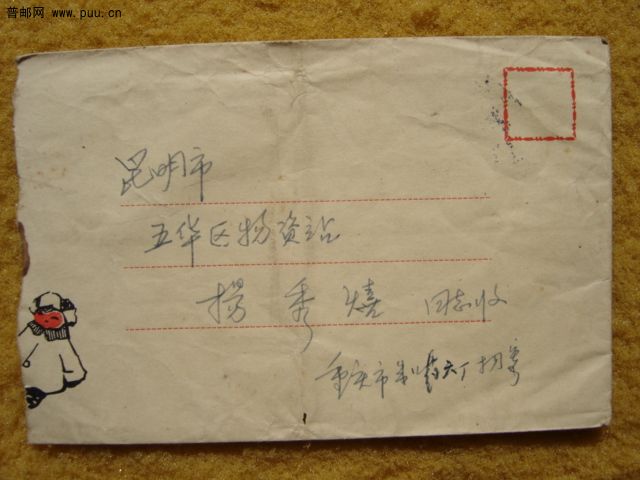 普邮网 www.puu.cn
昆明市
五华区物资站
杨秀嬉 同志收
重庆市